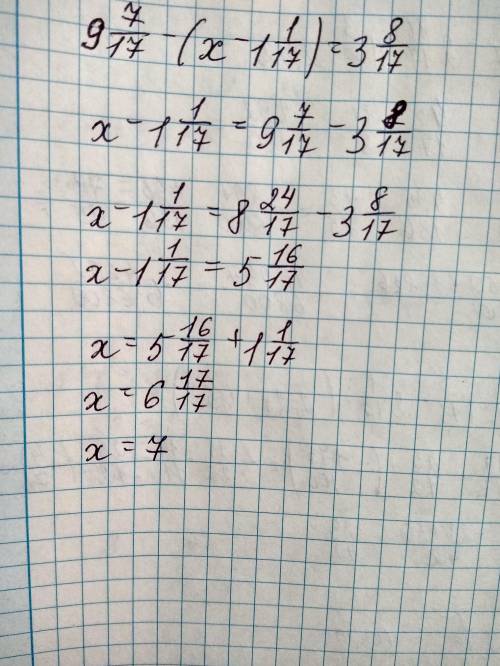 9 7/17 - (x - 1 1/17) = 3 8/17
x - 1 1/17 = 9 7/17 - 3 8/17
x - 1 1/17 = 8 24/17 - 3 8/17
x - 1 1/17 = 5 16/17
x = 5 16/17 + 1 1/17
x = 6 17/17
x = 7